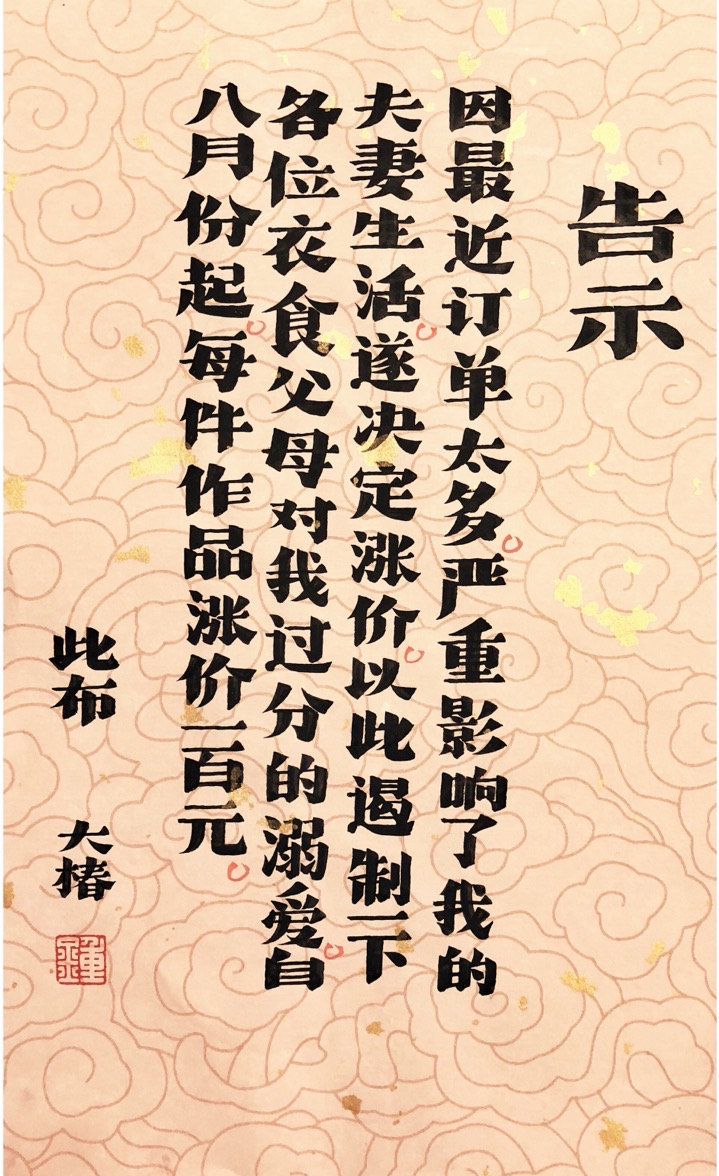 告示
因最近订单太多严重影响了我的
夫妻生活遂决定涨价以此遏制一下
各位衣食父母对我过分的溺爱自
八月份起每件作品涨价一百元
此布
大椿